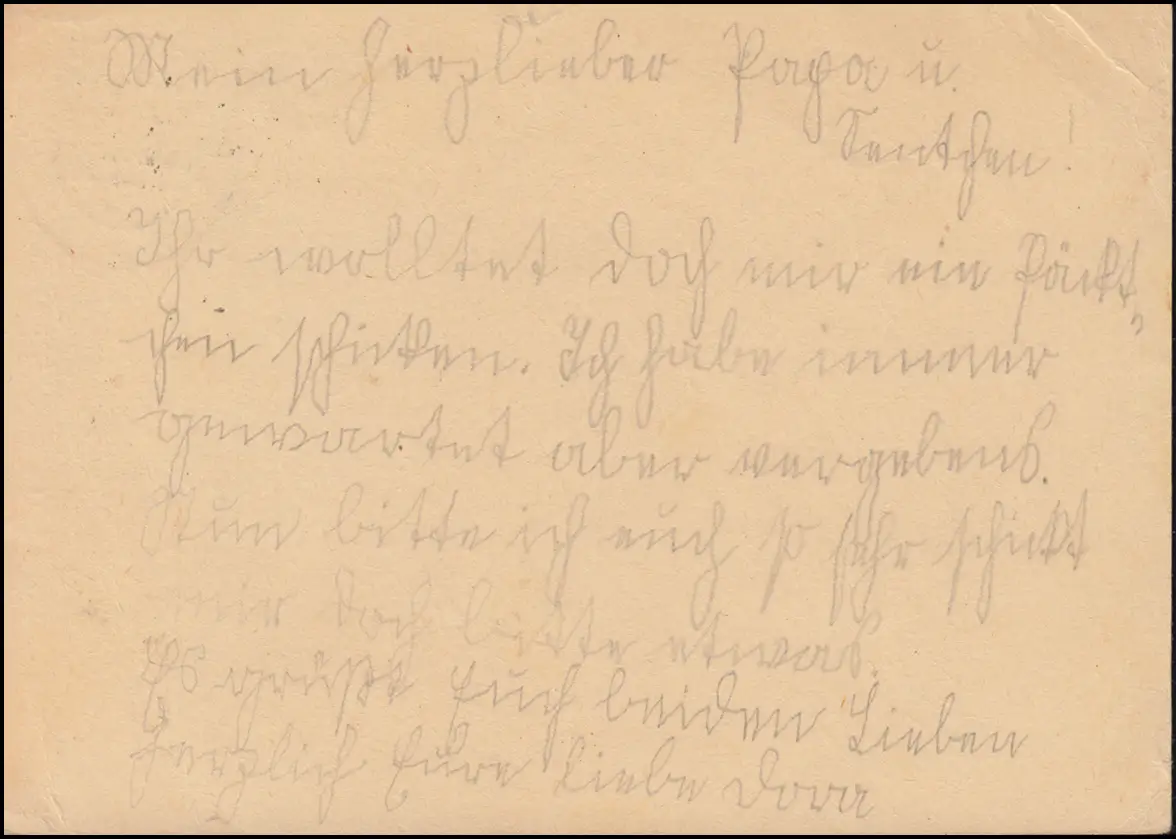 Mein herzlieber Papa u.
Tentchen!
Ihr wolltet doch mir ein Päckt„
chen schicken. Ich habe immer
gewartet aber vergebens.
Nun bitte ich euch so sehr schickt
mir doch bitte etwas.
Es grüßt Euch beiden Lieben
herzlich Eure liebe Dora